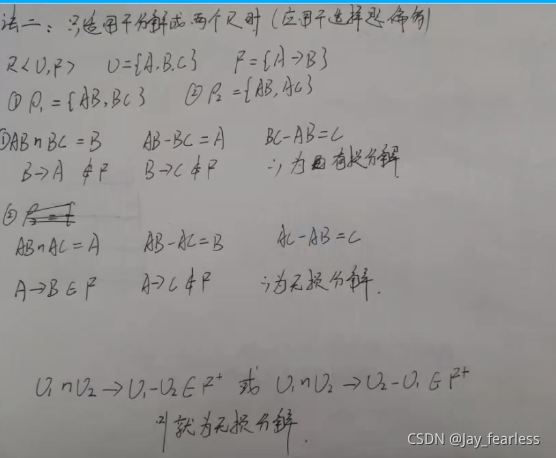 法二：只适用于分解成两个R时（应用于选择题偏多）
R<U,F> U={A,B,C} F={A→B}
① ρ1={AB,BC} ② ρ2={AB,AC}
①AB∩BC=B AB-BC=A BC-AB=C
B→A ∉F B→C∉F ∴为有损分解
②
AB∩AC=A AB-AC=B AC-AB=C
A→B∈F A→C∉F ∴为无损分解.
U1∩U2→U1-U2∈F+ 或 U1∩U2→U2-U1∈F+
则就为无损分解.
CSDN @Jay_fearless